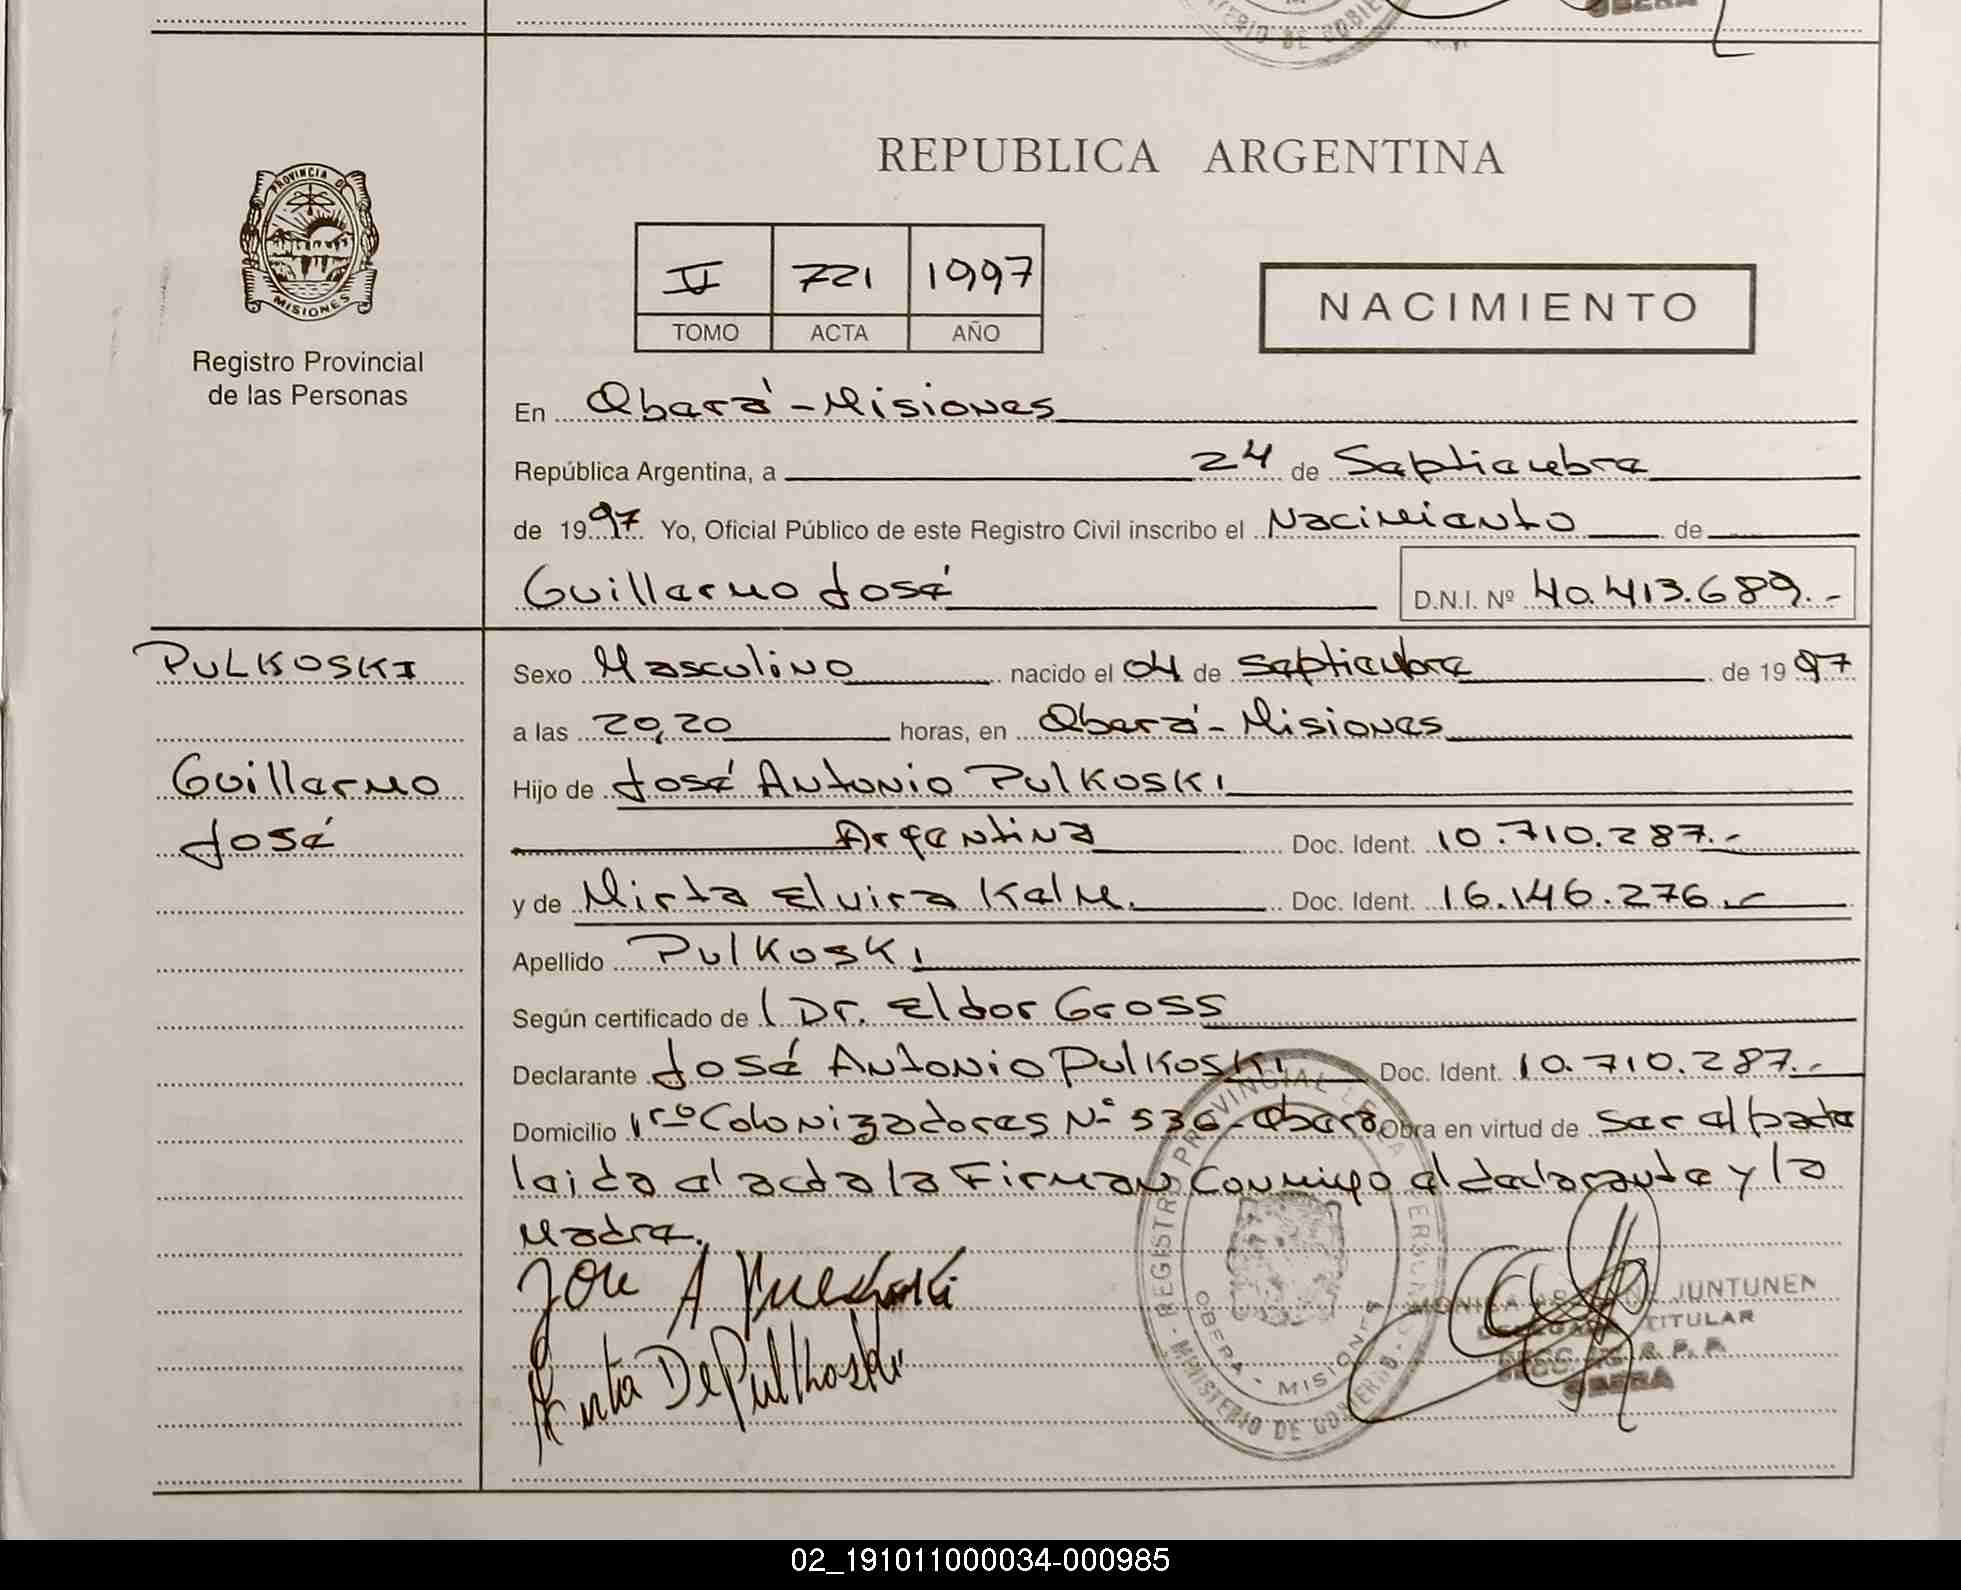 REPUBLICA ARGENTINA
PROVINCIA DE
MISIONES
Registro Provincial
de las Personas
V 721 1997
TOMO ACTA AÑO
NACIMIENTO
En Oberá - Misiones
República Argentina, a 24 de Septiembre
de 1997 Yo, Oficial Público de este Registro Civil inscribo el Nacimiento de
Guillermo José D.N.I. Nº 40.413.689.-
PULKOSKI
Guillermo
José
Sexo Masculino nacido el 04 de Septiembre de 1997
a las 20,20 horas, en Oberá - Misiones
Hijo de José Antonio Pulkoski
Argentina Doc. Ident. 10.710.287.-
y de Mirta Elvira Kalm. Doc. Ident. 16.146.276.-
Apellido Pulkoski
Según certificado de l Dr. Eldor Gross
Declarante José Antonio Pulkoski Doc. Ident. 10.710.287.-
Domicilio Nº 536 - Oberá Obra en virtud de ser el padre
leida el acta la Firman Conmigo el declarante y la
Madre.
Jose A Pulkoski
Mirta De Pulkoski
REGISTRO PROVINCIAL DE LAS PERSONAS
OBERA - MISIONES
MINISTERIO DE GOBIERNO
MONICA JUNTUNEN
DELEGADA TITULAR
R. P. P.
OBERA
02_191011000034-000985